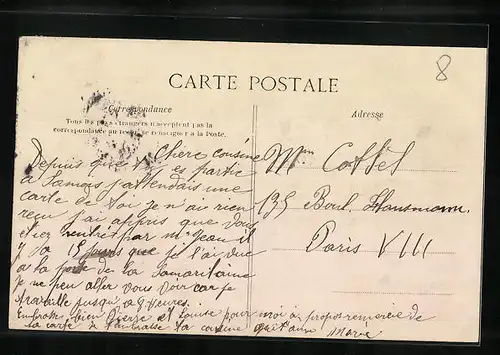 8
CARTE POSTALE
Correspondance
Tous les pays étrangers n'acceptent pas la
correspondance au recto. Se renseigner à la Poste.
Adresse
Chere cousine
Depuis que tu es partie
a Samois j'attendais une
carte de toi je n'ai rien
reçu j'ai appris que vous
etiez rentrés par Mr Jean il
y a 15 jours que je l'ai vue
a la porte de la Samaritaine
je ne peu aller vous voir car je
travaille jusqu'a 9 heures.
Embrasse bien Pierre et Louise pour moi a propos remercie de
sa carte ta cousine qui t'aime Marie
Mme Cottel
135 Boul. Haussmann.
Paris VIII